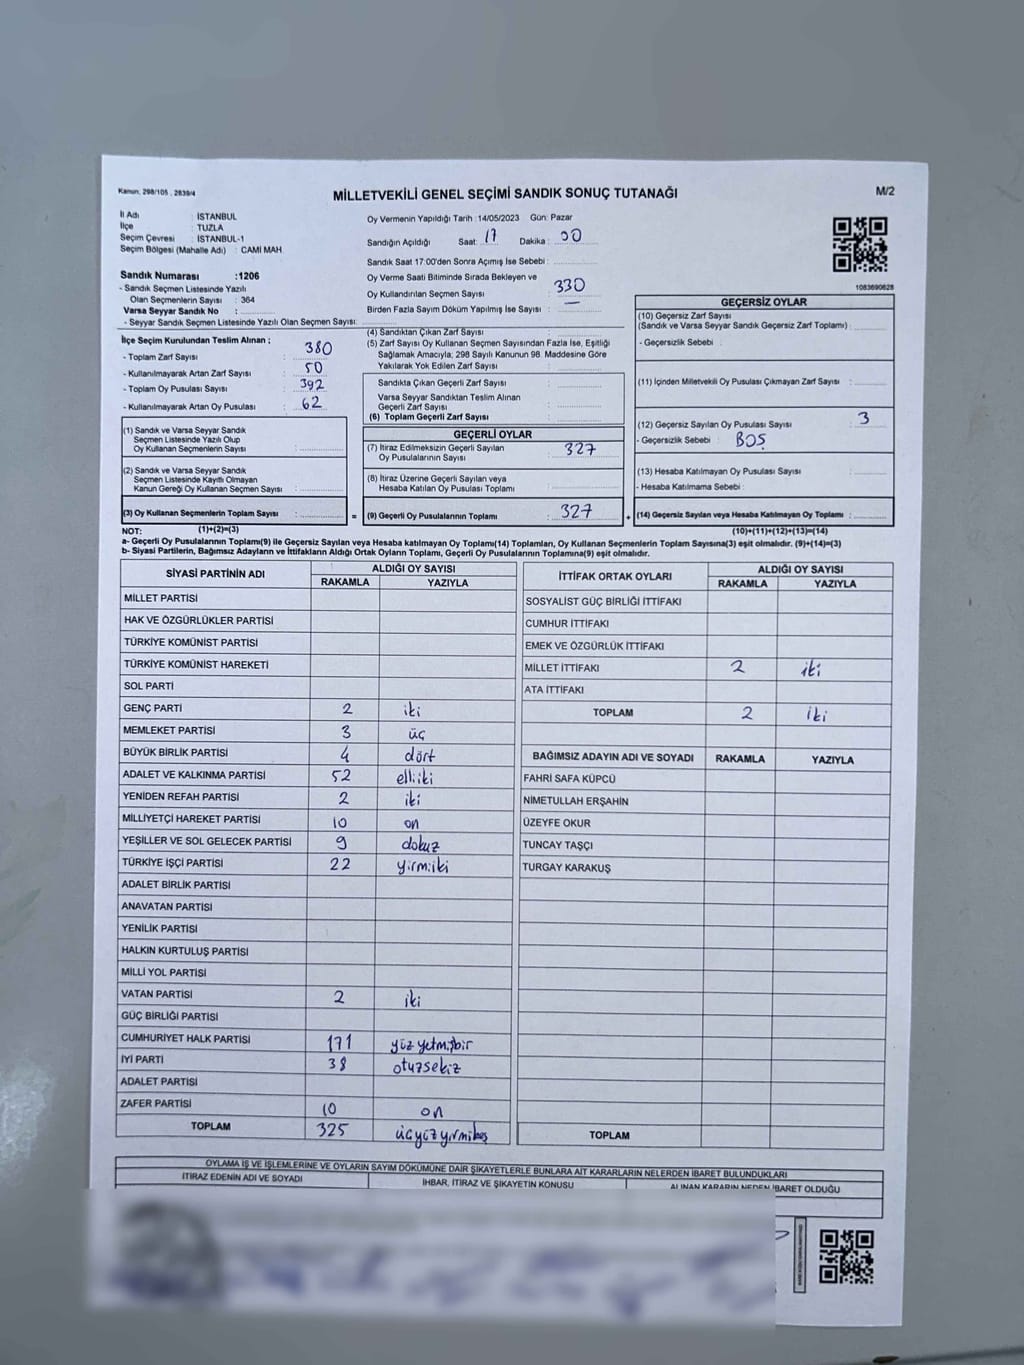 Kanun: 298/105 , 2839/4
MİLLETVEKİLİ GENEL SEÇİMİ SANDIK SONUÇ TUTANAĞI
M/2
İl Adı : İSTANBUL
İlçe : TUZLA
Seçim Çevresi : İSTANBUL-1
Seçim Bölgesi (Mahalle Adı) : CAMİ MAH
Sandık Numarası :1206
- Sandık Seçmen Listesinde Yazılı
Olan Seçmenlerin Sayısı : 364
Varsa Seyyar Sandık No :
- Seyyar Sandık Seçmen Listesinde Yazılı Olan Seçmen Sayısı:
Oy Vermenin Yapıldığı Tarih :14/05/2023 Gün: Pazar
Sandığın Açıldığı Saat: 17 Dakika : 30
Sandık Saat 17:00'den Sonra Açımış İse Sebebi :
Oy Verme Saati Bitiminde Sırada Bekleyen ve
Oy Kullandırılan Seçmen Sayısı : 330
Birden Fazla Sayım Döküm Yapılmış İse Sayısı : —
1083690628
İlçe Seçim Kurulundan Teslim Alınan ;
- Toplam Zarf Sayısı : 380
- Kullanılmayarak Artan Zarf Sayısı : 50
- Toplam Oy Pusulası Sayısı : 392
- Kullanılmayarak Artan Oy Pusulası : 62
(1) Sandık ve Varsa Seyyar Sandık
Seçmen Listesinde Yazılı Olup
Oy Kullanan Seçmenlerin Sayısı :
(2) Sandık ve Varsa Seyyar Sandık
Seçmen Listesinde Kayıtlı Olmayan
Kanun Gereği Oy Kullanan Seçmen Sayısı :
(3) Oy Kullanan Seçmenlerin Toplam Sayısı :
(4) Sandıktan Çıkan Zarf Sayısı :
(5) Zarf Sayısı Oy Kullanan Seçmen Sayısından Fazla İse, Eşitliği
Sağlamak Amacıyla; 298 Sayılı Kanunun 98. Maddesine Göre
Yakılarak Yok Edilen Zarf Sayısı :
Sandıkta Çıkan Geçerli Zarf Sayısı :
Varsa Seyyar Sandıktan Teslim Alınan
Geçerli Zarf Sayısı :
(6) Toplam Geçerli Zarf Sayısı :
GEÇERLİ OYLAR
(7) İtiraz Edilmeksizin Geçerli Sayılan
Oy Pusulalarının Sayısı : 327
(8) İtiraz Üzerine Geçerli Sayılan veya
Hesaba Katılan Oy Pusulası Toplamı :
= (9) Geçerli Oy Pusulalarının Toplamı : 327 +
GEÇERSİZ OYLAR
(10) Geçersiz Zarf Sayısı
(Sandık ve Varsa Seyyar Sandık Geçersiz Zarf Toplamı) :
- Geçersizlik Sebebi :
(11) İçinden Milletvekili Oy Pusulası Çıkmayan Zarf Sayısı :
(12) Geçersiz Sayılan Oy Pusulası Sayısı : 3
- Geçersizlik Sebebi : BOŞ
(13) Hesaba Katılmayan Oy Pusulası Sayısı :
- Hesaba Katılmama Sebebi :
(14) Geçersiz Sayılan veya Hesaba Katılmayan Oy Toplamı :
NOT: (1)+(2)=(3) (10)+(11)+(12)+(13)=(14)
a- Geçerli Oy Pusulalarının Toplamı(9) ile Geçersiz Sayılan veya Hesaba katılmayan Oy Toplamı(14) Toplamları, Oy Kullanan Seçmenlerin Toplam Sayısına(3) eşit olmalıdır. (9)+(14)=(3)
b- Siyasi Partilerin, Bağımsız Adayların ve İttifakların Aldığı Ortak Oyların Toplamı, Geçerli Oy Pusulalarının Toplamına(9) eşit olmalıdır.
SİYASİ PARTİNİN ADI ALDIĞI OY SAYISI
RAKAMLA YAZIYLA
MİLLET PARTİSİ
HAK VE ÖZGÜRLÜKLER PARTİSİ
TÜRKİYE KOMÜNİST PARTİSİ
TÜRKİYE KOMÜNİST HAREKETİ
SOL PARTİ
GENÇ PARTİ 2 iki
MEMLEKET PARTİSİ 3 üç
BÜYÜK BİRLİK PARTİSİ 4 dört
ADALET VE KALKINMA PARTİSİ 52 elliiki
YENİDEN REFAH PARTİSİ 2 iki
MİLLİYETÇİ HAREKET PARTİSİ 10 on
YEŞİLLER VE SOL GELECEK PARTİSİ 9 dokuz
TÜRKİYE İŞÇİ PARTİSİ 22 yirmiiki
ADALET BİRLİK PARTİSİ
ANAVATAN PARTİSİ
YENİLİK PARTİSİ
HALKIN KURTULUŞ PARTİSİ
MİLLİ YOL PARTİSİ
VATAN PARTİSİ 2 iki
GÜÇ BİRLİĞİ PARTİSİ
CUMHURİYET HALK PARTİSİ 171 yüz yetmişbir
İYİ PARTİ 38 otuzsekiz
ADALET PARTİSİ
ZAFER PARTİSİ 10 on
TOPLAM 325 üçyüzyirmibeş
İTTİFAK ORTAK OYLARI ALDIĞI OY SAYISI
RAKAMLA YAZIYLA
SOSYALİST GÜÇ BİRLİĞİ İTTİFAKI
CUMHUR İTTİFAKI
EMEK VE ÖZGÜRLÜK İTTİFAKI
MİLLET İTTİFAKI 2 iki
ATA İTTİFAKI
TOPLAM 2 iki
BAĞIMSIZ ADAYIN ADI VE SOYADI RAKAMLA YAZIYLA
FAHRİ SAFA KÜPCÜ
NİMETULLAH ERŞAHİN
ÜZEYFE OKUR
TUNCAY TAŞÇI
TURGAY KARAKUŞ
TOPLAM
OYLAMA İŞ VE İŞLEMLERİNE VE OYLARIN SAYIM DÖKÜMÜNE DAİR ŞİKAYETLERLE BUNLARA AİT KARARLARIN NELERDEN İBARET BULUNDUKLARI
İTİRAZ EDENİN ADI VE SOYADI İHBAR, İTİRAZ VE ŞİKAYETİN KONUSU ALINAN KARARIN NEDEN İBARET OLDUĞU